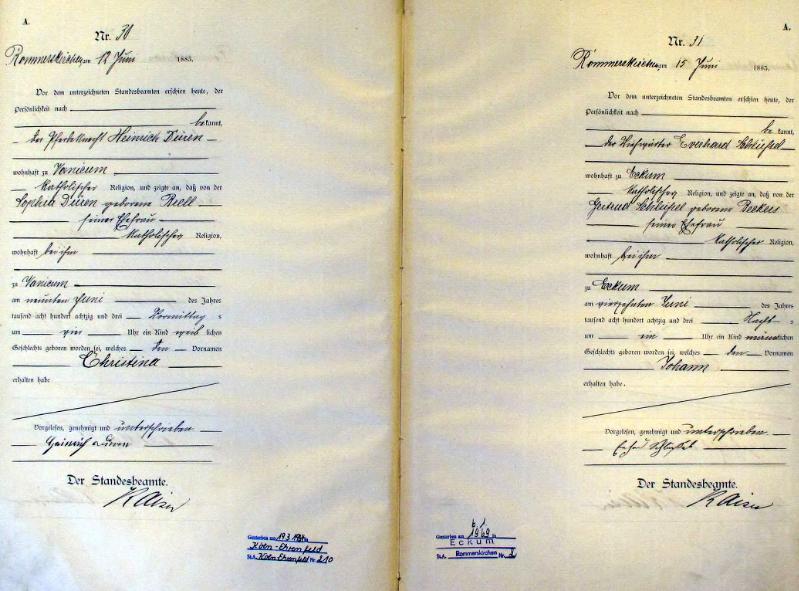 A.
Nr. 30
Rommerskirchen am 12 Juni 1883.
Vor dem unterzeichneten Standesbeamten erschien heute, der
Persönlichkeit nach
bekannt,
der Pferdeknecht Heinrich Düren
wohnhaft zu Vanicum
katholischer Religion, und zeigte an, daß von der
Sophia Düren geborene Kell
seiner Ehefrau
katholischer Religion,
wohnhaft bei ihm
zu Vanicum
am neunten Juni des Jahres
tausend acht hundert achtzig und drei Vormittag s
um Uhr ein Kind weib lichen
Geschlechts geboren worden sei, welches den Vornamen
Christina
erhalten habe
Vorgelesen, genehmigt und unterschrieben
Heinrich Düren
Der Standesbeamte.
Kaiser
Gestorben am
Köln-Ehrenfeld
St.A. Köln Ehrenfeld Nr 210
A.
Nr. 31
Rommerskirchen am 15 Juni 1883.
Vor dem unterzeichneten Standesbeamten erschien heute, der
Persönlichkeit nach
be kannt,
der Everhard Schlüssel
wohnhaft zu Eckum
katholischer Religion, und zeigte an, daß von der
Gertrud Schlüssel geborene Beckers
seiner Ehefrau
katholischer Religion,
wohnhaft bei ihm
zu Eckum
am vierzehnten Juni des Jahres
tausend acht hundert achtzig und drei Nacht
um ein Uhr ein Kind männlichen
Geschlechts geboren worden sei, welches den Vornamen
Johann
erhalten habe.
Vorgelesen, genehmigt und unterschrieben
Der Standesbeamte.
Kaiser
Gestorben am 1969 in
Eckum
St.A. Rommerskirchen Nr. 2